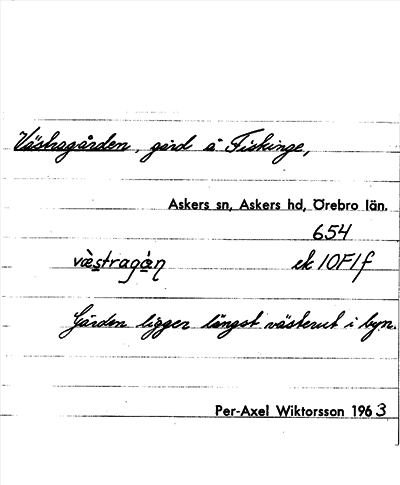 Västragården, gård å Fiskinge,
Askers sn, Askers hd, Örebro län.
654
væ̀stragàn ek 10F1f
Gården ligger längst västerut i byn.
Per-Axel Wiktorsson 1963